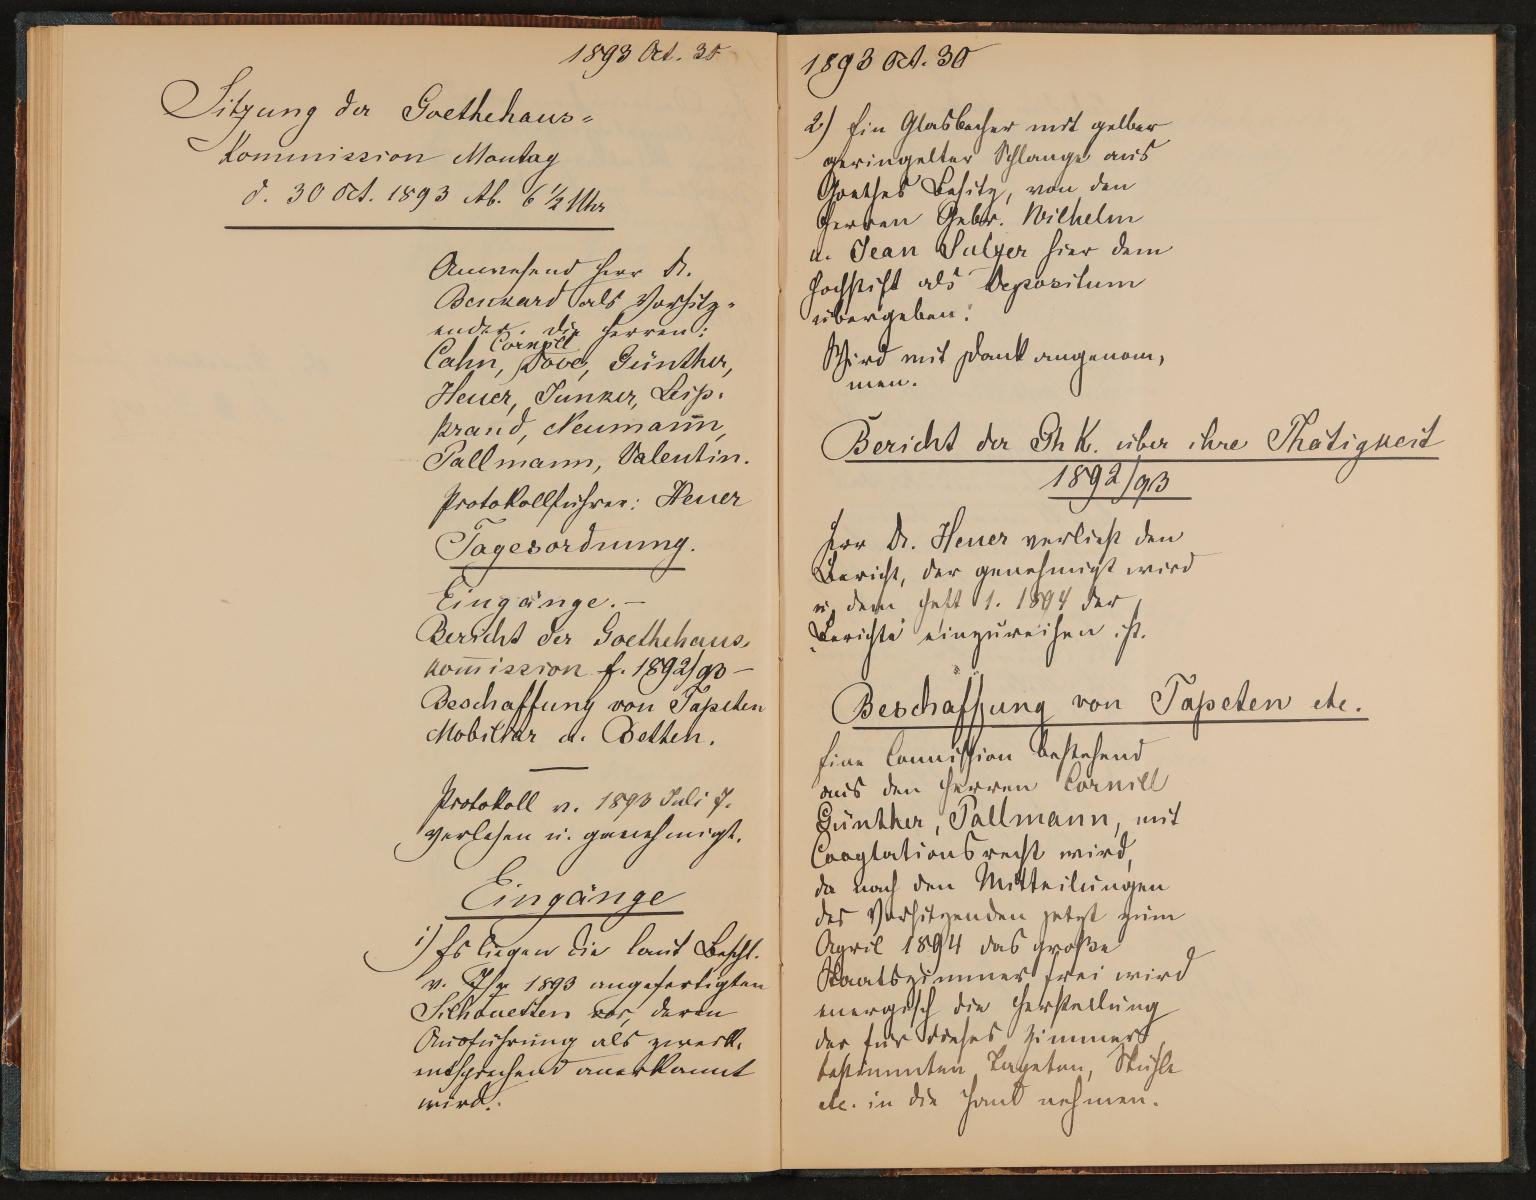 1893 Oct. 30
Sitzung der Goethehaus-
kommission Montag
d. 30 Oct. 1893 Ab. 6 1/2 Uhr
Anwesend Herr Dr.
Benkard als Vorsitz-
ender. die Herren:
Cornill
Cahn, Dove, Günther,
Heuer, Junker, Liep-
brand, Neumann,
Pallmann, Valentin.
Protokollführer: Heuer
Tagesordnung.
Eingänge. –
Bericht der Goethehaus-
kommission f. 1892/93 –
Beschaffung von Tapeten
Mobiliar u. Betten.
Protokoll v. 1893 Juli 7.
verlesen u. genehmigt.
Eingänge
1) Es liegen die laut Beschl.
v. 7/7 1893 angefertigten
Silhouetten vor, deren
Ausführung als zweck-
entsprechend anerkannt
wird.
1893 Oct. 30
2) Ein Glasbecher mit gelber
geringelter Schlange aus
Goethes Besitz, von den
Herren Gebr. Wilhelm
u. Jean Sulzer hier dem
Hochstift als Depositum
übergeben.
Wird mit Dank angenom-
men.
Bericht der Gh K. über ihre Thätigkeit
1892/93
Herr Dr. Heuer verliest den
Bericht, der genehmigt wird
u. dem Heft 1. 1894 der
"Berichte" einzureihen ist.
Beschaffung von Tapeten etc.
Eine Commission bestehend
aus den Herren Cornill
Günther, Pallmann, mit
Cooptationsrecht wird,
da nach den Mitteilungen
des Vorsitzenden jetzt zum
April 1894 das große
Staatszimmer frei wird
energisch die Herstellung
der für dieses Zimmer
bestimmten Tapeten, Stühle
etc. in die Hand nehmen.